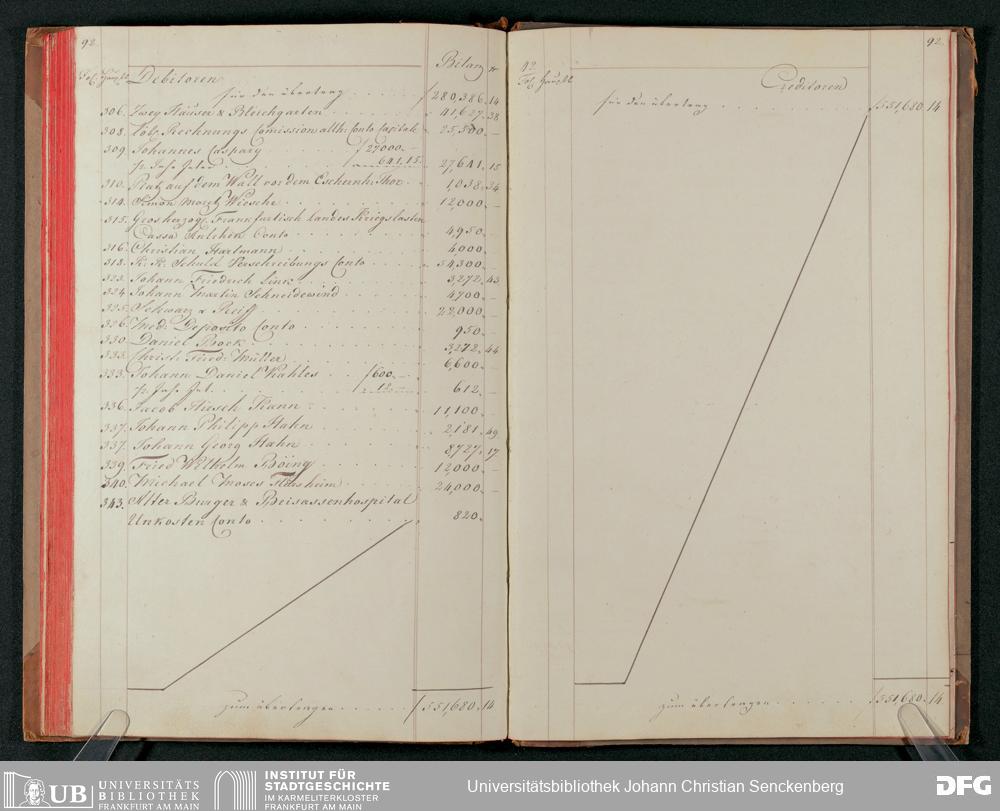 92.
Fol. Haupt. Debitoren Bilanz
für den übertrag f 280,386. 14
306. Zweg Häuser & Bleichgarten 41,627. 38
308. Löbl. Rechnungs Comission allh: Conto Capitale 25,500. –
309. Johannes Caspary f 27000. –
p. Inf. Int. 641. 15. 27,641. 15
310. Platz auf dem Wall vor dem Eschenh: Thor 1,038. 34
314. Simon Moritz Wiesche 12,000. –
315. Grosherzogl. Frankfurtisch Landes Kriegs Costen
Cassa Anlehen Conto 4950. –
316. Christian Hartmann 4000. –
318. K: K: Schuld Verschreibungs Conto 54,300. –
323. Johann Friedrich Linck 3272. 43
324. Johann Martin Schneidewind 4700. –
325. Schwarz & Reiff 22,000. –
326. Deposito Conto 950. –
330. Daniel Bock 3,272. 44
333. Christ: Fried: Müller 6,600. –
333. Johann Daniel Kahles f 600. –
p. Inf. Int. 12. 612. –
336. Jacob Hirsch Kann 11,100. –
337. Johann Philipp Hahn 2,181. 49
337. Johann Georg Hahn 8727. 17
339. Fried Wilhelm Böing 12,000. –
340. Michael Moses Flörsheim 24,000. –
343. Alter Burger & Beisassenhospital
Unkosten Conto 820. –
zum übertragen f 551,680. 14
92.
92
Fol. Haupt. Creditoren
für den übertrag f 551,680. 14
zum übertragen f 551,680. 14
UB UNIVERSITÄTS
BIBLIOTHEK
FRANKFURT AM MAIN
INSTITUT FÜR
STADTGESCHICHTE
IM KARMELITERKLOSTER
FRANKFURT AM MAIN
Universitätsbibliothek Johann Christian Senckenberg
DFG